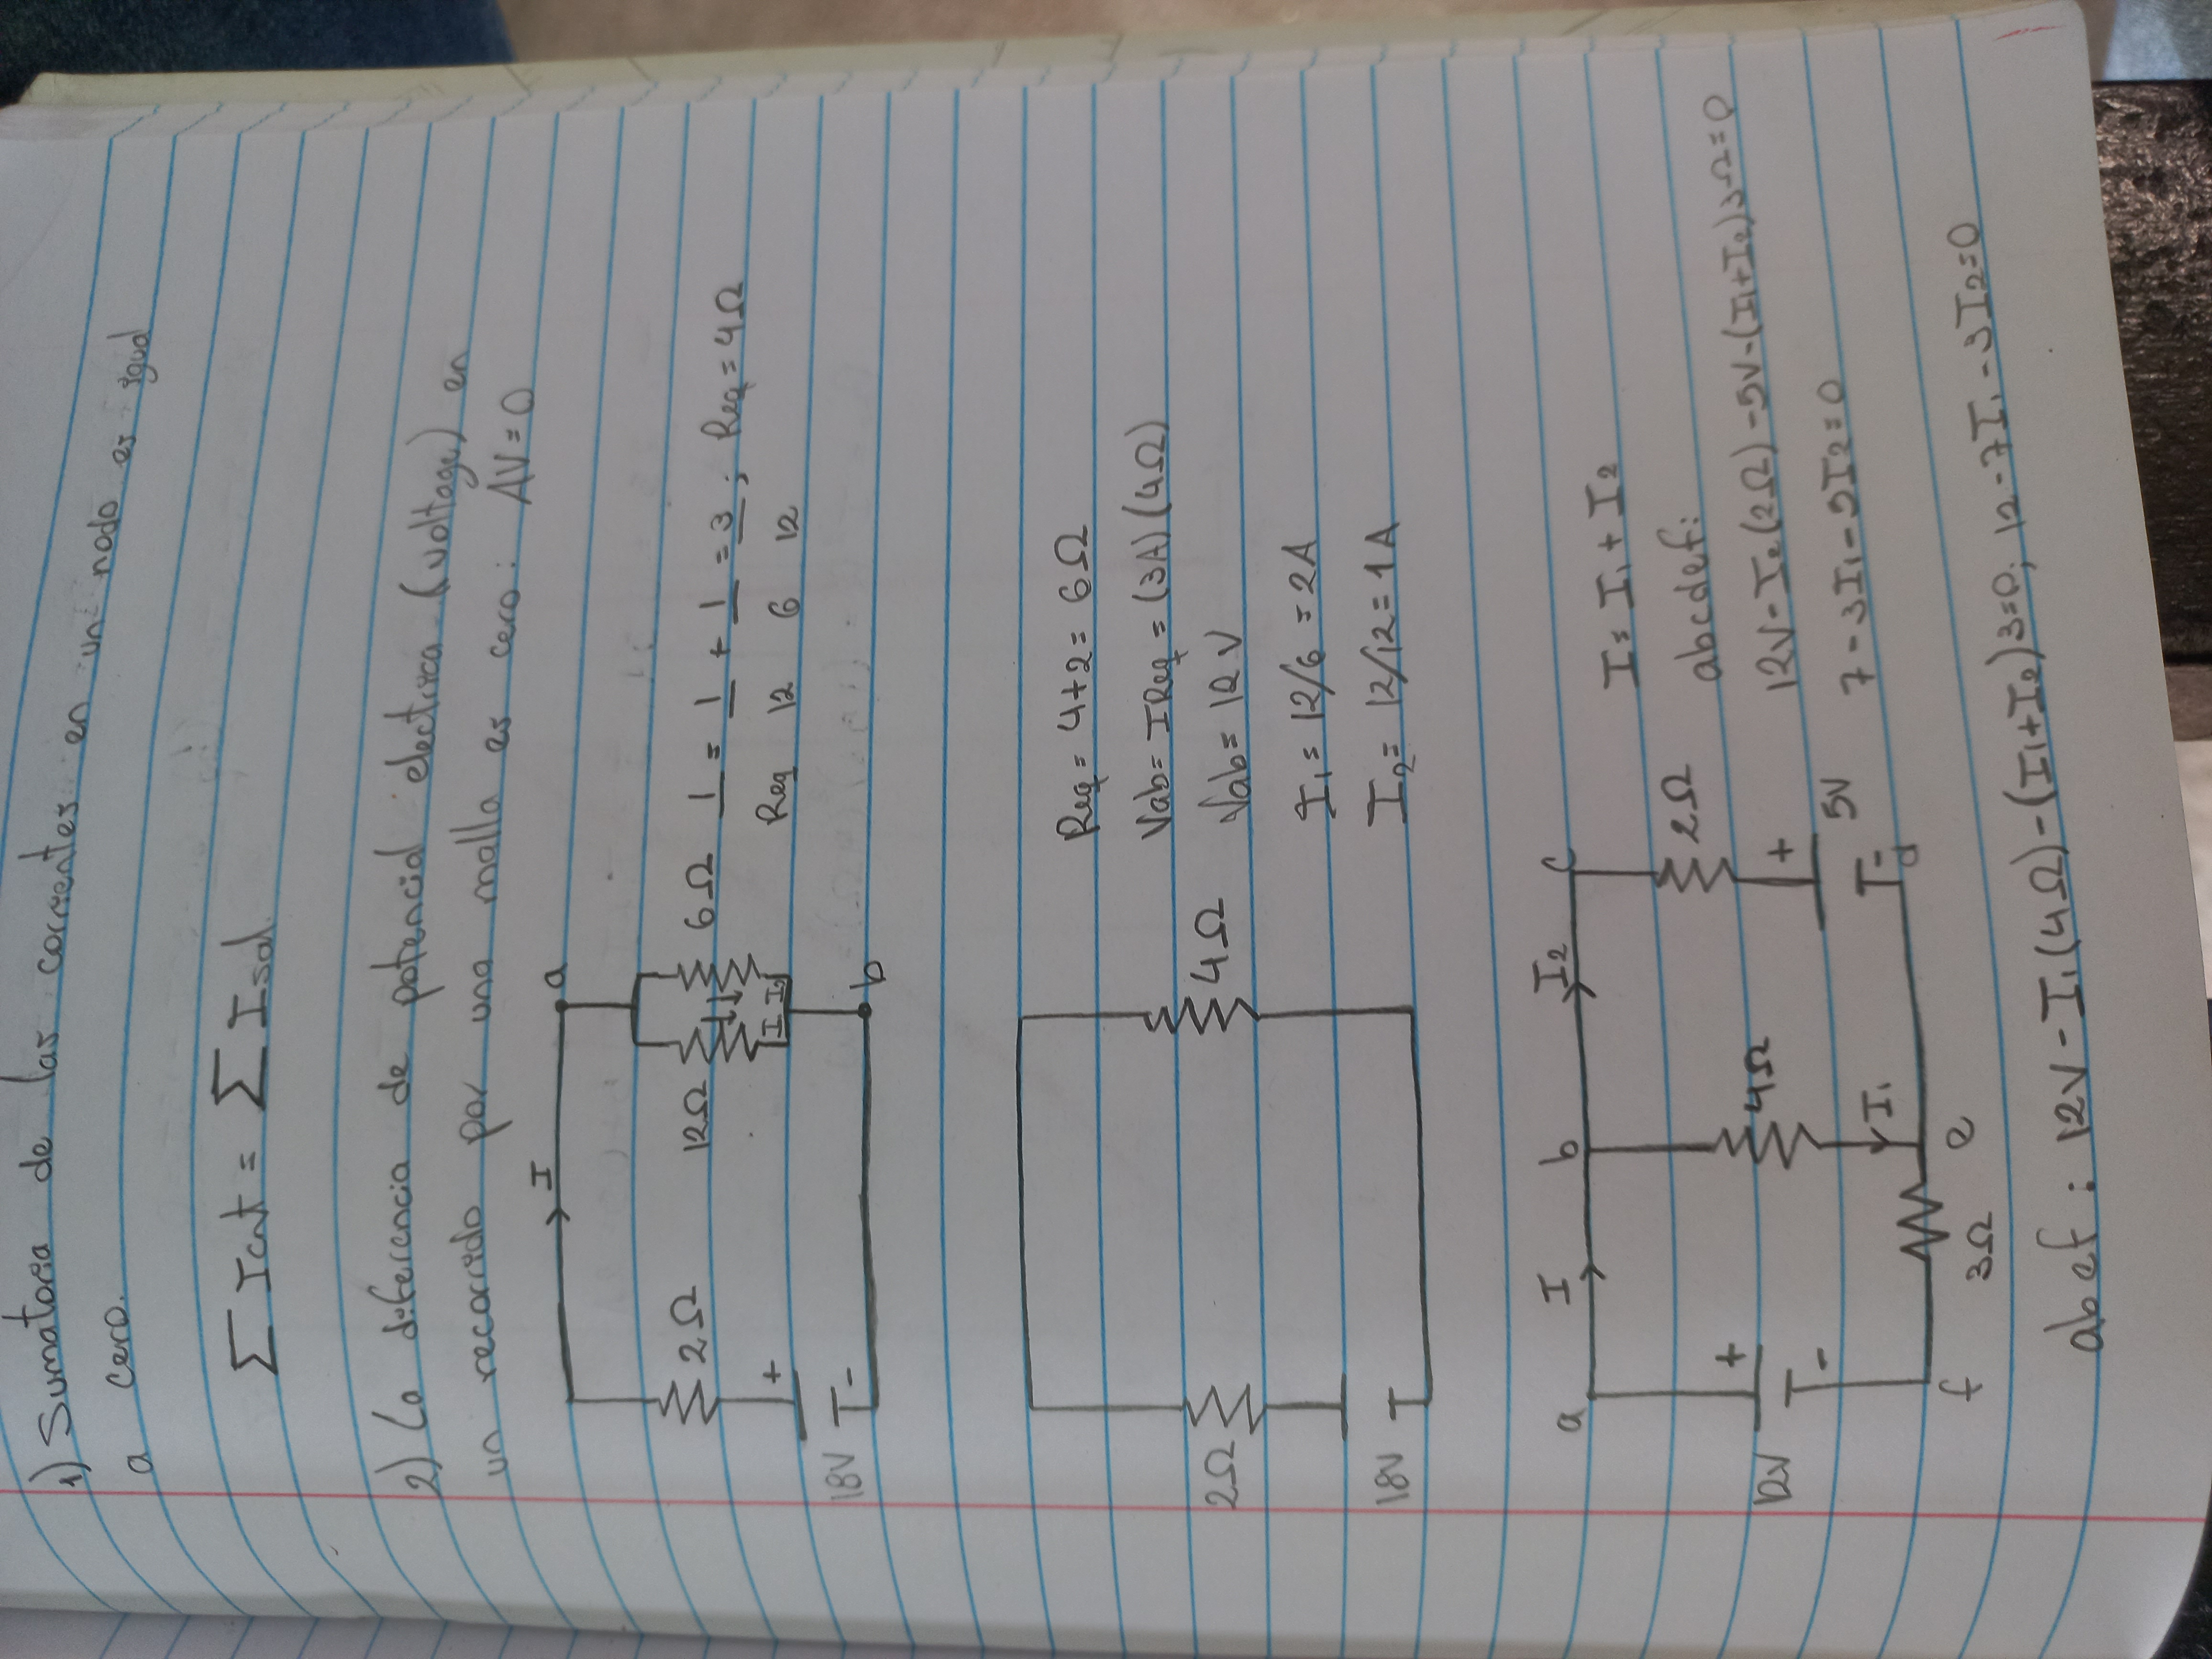 1) Sumatoria de las corrientes en un nodo es igual
a cero.
∑ Ient = ∑ Isal
2) La diferencia de potencial electrica (voltage) en
un recorrido por una malla es cero: ΔV = 0
I
a
2Ω
12Ω
6Ω
1/Req = 1/12 + 1/6 = 3/12 ; Req = 4Ω
I1 I2
18V
+
-
b
Req = 4+2 = 6Ω
Vab = IReq = (3A)(4Ω)
2Ω
4Ω
Vab = 12V
I1 = 12/6 = 2A
18V
I2 = 12/12 = 1A
a
I
b
I2
c
I = I1 + I2
2Ω
abcdef:
12V
+
-
4Ω
+
12V - I2(2Ω) - 5V - (I1+I2)3Ω = 0
5V
I1
-
7 - 3I1 - 5I2 = 0
f
3Ω
e
d
abef: 12V - I1(4Ω) - (I1+I2)3=0; 12 - 7I1 - 3I2=0